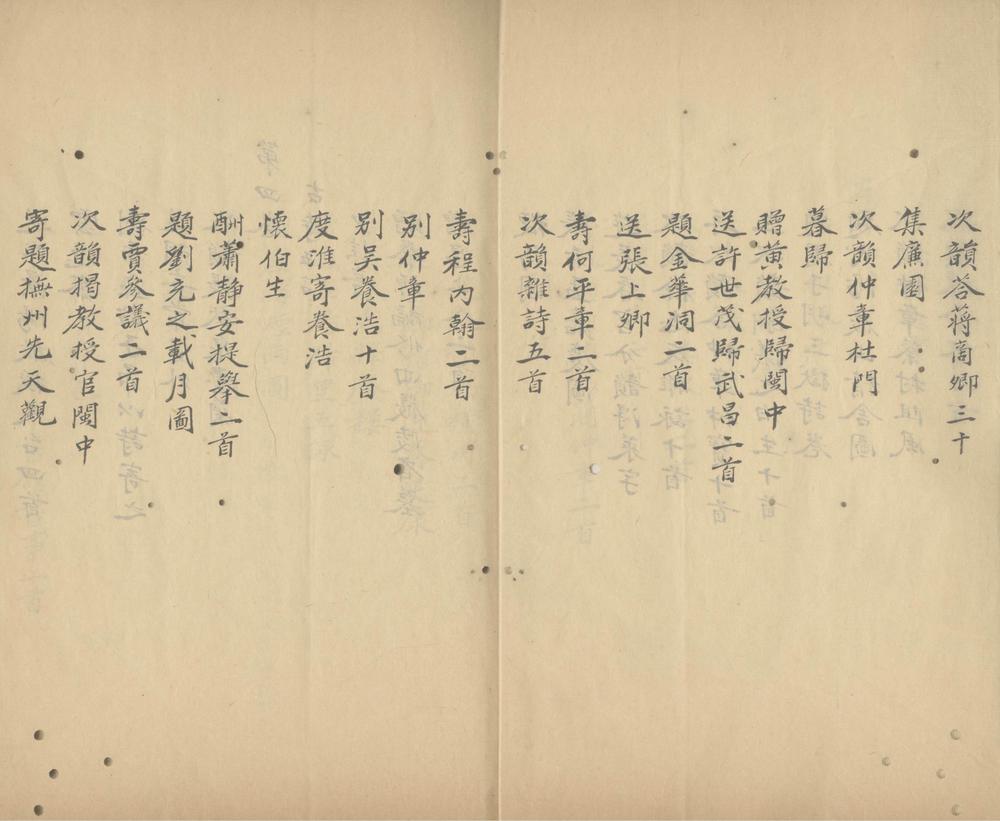 次韻答蔣商卿三十
集廉園
次韻仲章杜門
暮歸
贈黄教授歸閩中
送許世茂歸武昌二首
題金華洞二首
送張上卿
壽何平章二首
次韻雜詩五首
壽程内翰二首
别仲章
别吴養浩十首
度淮寄養浩
懷伯生
酬蕭靜安提舉二首
題劉充之載月圖
壽賈參議二首
次韻揭教授官閩中
寄題撫州先天觀